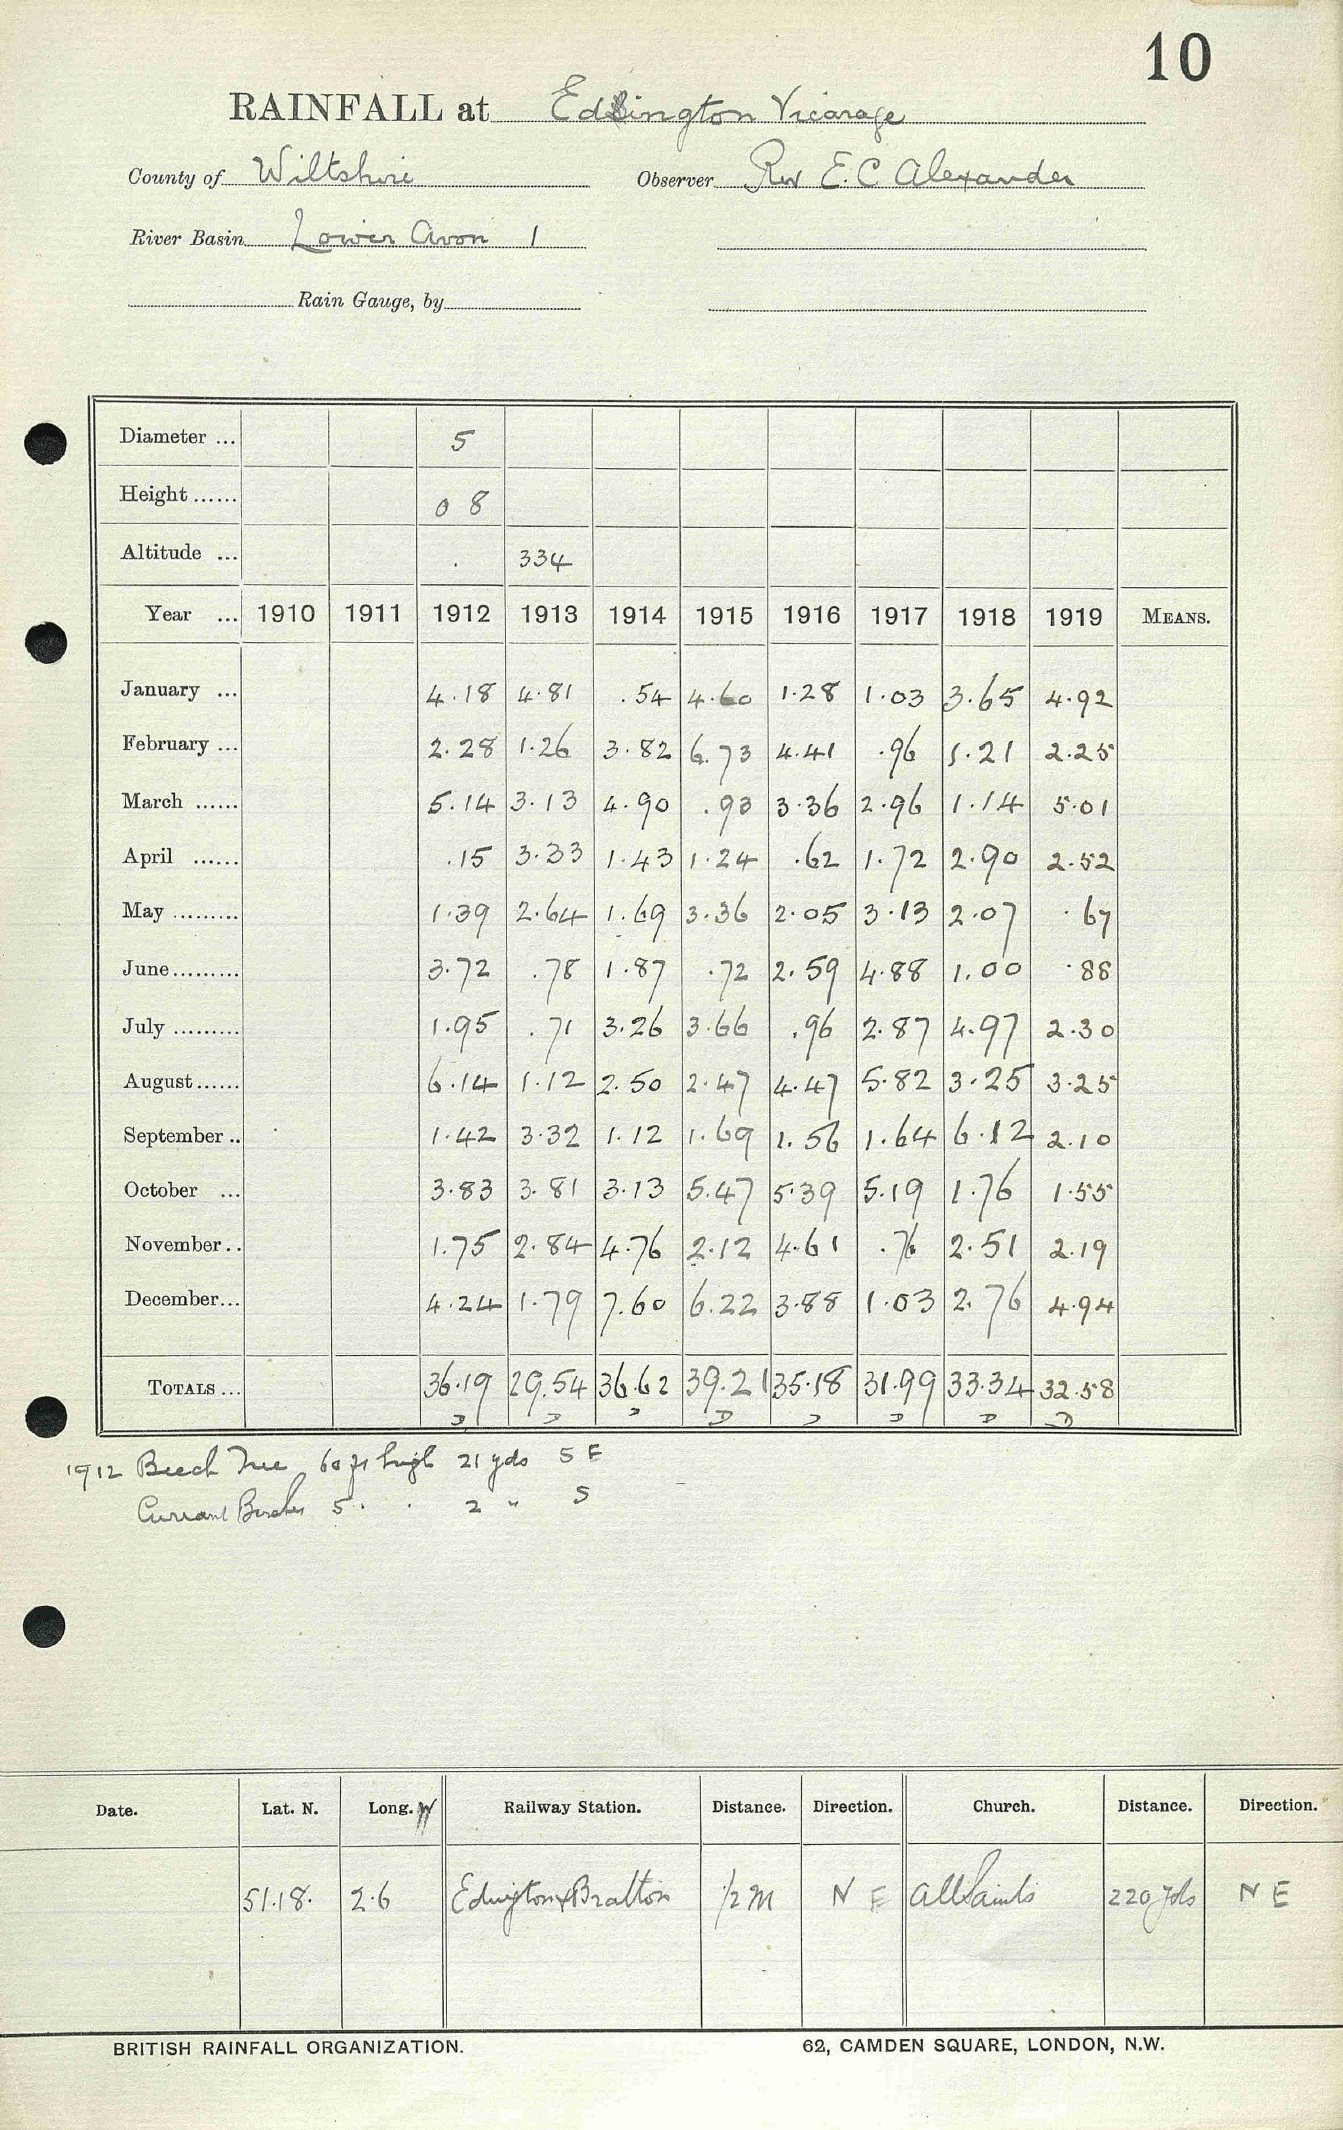 10
RAINFALL at Edington Vicarage
County of Wiltshire Observer Rev E. C. Alexander
River Basin Lower Avon 1
Rain Gauge, by
Diameter ... 5
Height ...... 0 8
Altitude ... 334
Year ... 1910 1911 1912 1913 1914 1915 1916 1917 1918 1919 MEANS.
January ... 4.18 4.81 .54 4.60 1.28 1.03 3.65 4.92
February ... 2.28 1.26 3.82 6.73 4.41 .96 1.21 2.25
March ...... 5.14 3.13 4.90 .93 3.36 2.96 1.14 5.01
April ...... .15 3.33 1.43 1.24 .62 1.72 2.90 2.52
May ......... 1.39 2.64 1.69 3.36 2.05 3.13 2.07 .67
June......... 3.72 .78 1.87 .72 2.59 4.88 1.00 .88
July ......... 1.95 .71 3.26 3.66 .96 2.87 4.97 2.30
August...... 6.14 1.12 2.50 2.47 4.47 5.82 3.25 3.25
September .. 1.42 3.32 1.12 1.69 1.56 1.64 6.12 2.10
October ... 3.83 3.81 3.13 5.47 5.39 5.19 1.76 1.55
November.. 1.75 2.84 4.76 2.12 4.61 .76 2.51 2.19
December... 4.24 1.79 7.60 6.22 3.88 1.03 2.76 4.94
TOTALS ... 36.19 29.54 36.62 39.21 35.18 31.99 33.34 32.58
D D D D D D D D
1912 Beech Tree 60 ft high 21 yds S E
Currant Bushes 5 . . 2 " S
Date. Lat. N. Long. W Railway Station. Distance. Direction. Church. Distance. Direction.
51.18. 2.6 Edington & Bratton 1/2 m N E All Saints 220 yds N E
BRITISH RAINFALL ORGANIZATION. 62, CAMDEN SQUARE, LONDON, N.W.